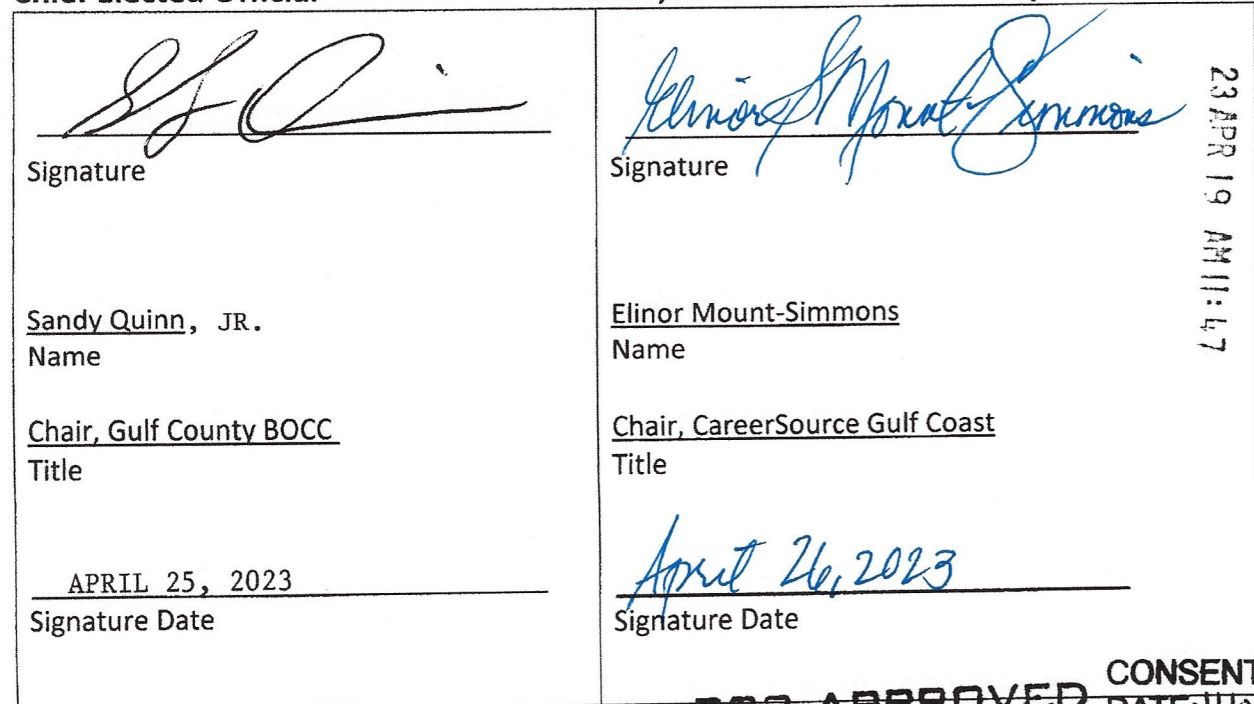 Chief Elected Official
Signature
Sandy Quinn, JR.
Name
Chair, Gulf County BOCC
Title
APRIL 25, 2023
Signature Date
Elinor S Mount-Simmons
Signature
Elinor Mount-Simmons
Name
Chair, CareerSource Gulf Coast
Title
April 26, 2023
Signature Date
23 APR 19 AM 11:47
APPROVED
CONSENT
DATE: